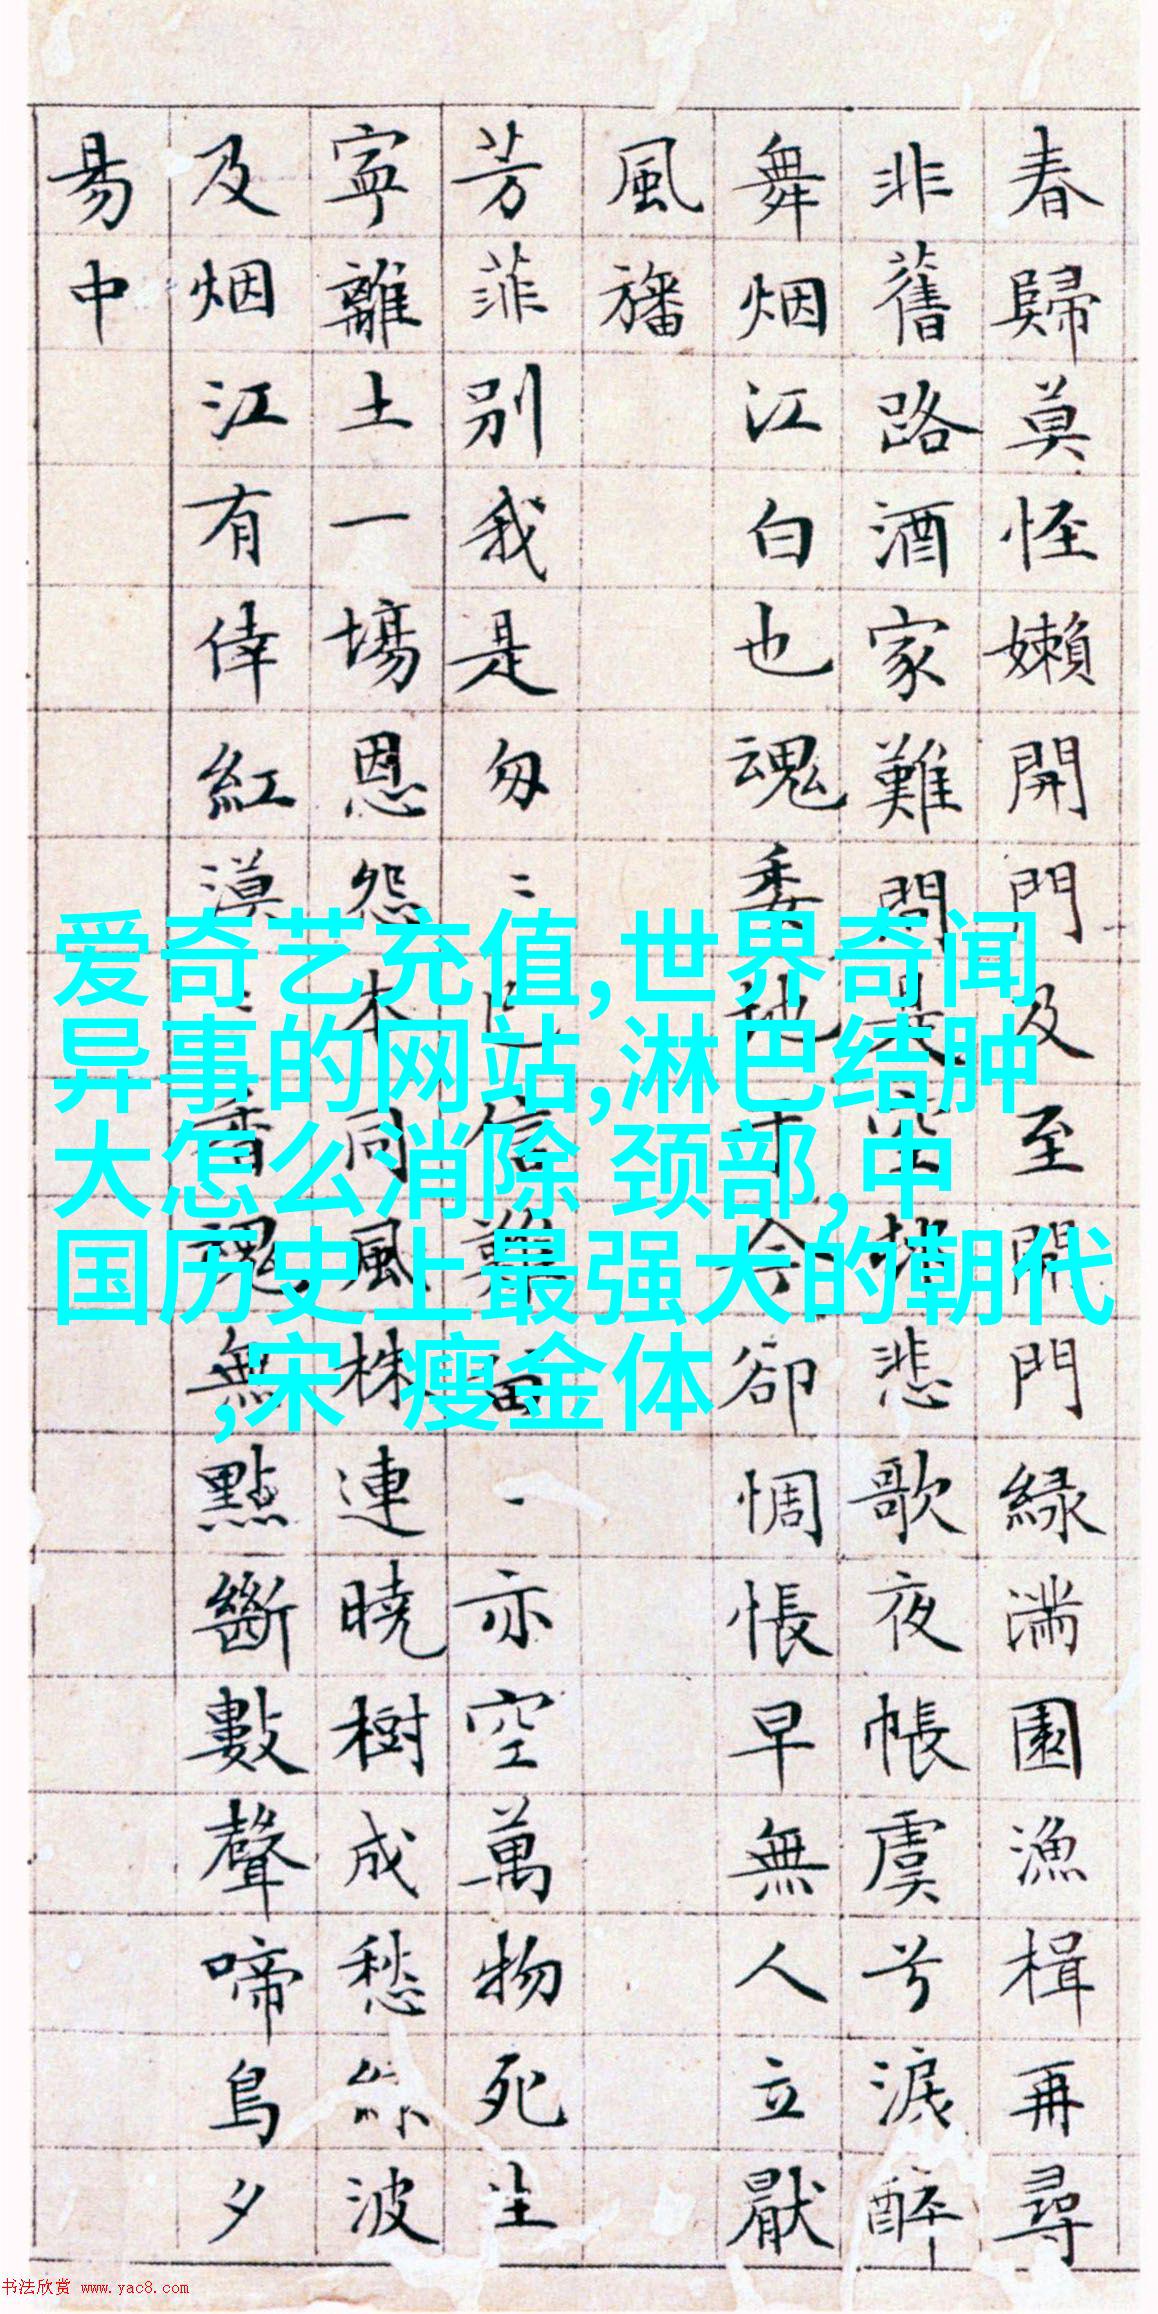 春歸莫怪嬾開門及至開門緑滿園漁楫再尋
非舊路酒家難問是空村悲歌夜帳虞兮淚醉
舞烟江白也魂委地于今卻惆悵早無人立厭
風旛
芳菲别我是匆〻已信難留一亦空萬物死生
寧離土一場恩怨本同風株連曉樹成愁綠波
及烟江有倖紅漠〻香魂無點斷數聲啼鳥夕
昜中
爱奇艺充值,世界奇闻
异事的网站,淋巴结肿
大怎么消除 颈部,中
国历史上最强大的朝代
,宋 瘦金体
书法欣赏 www.yac8.com